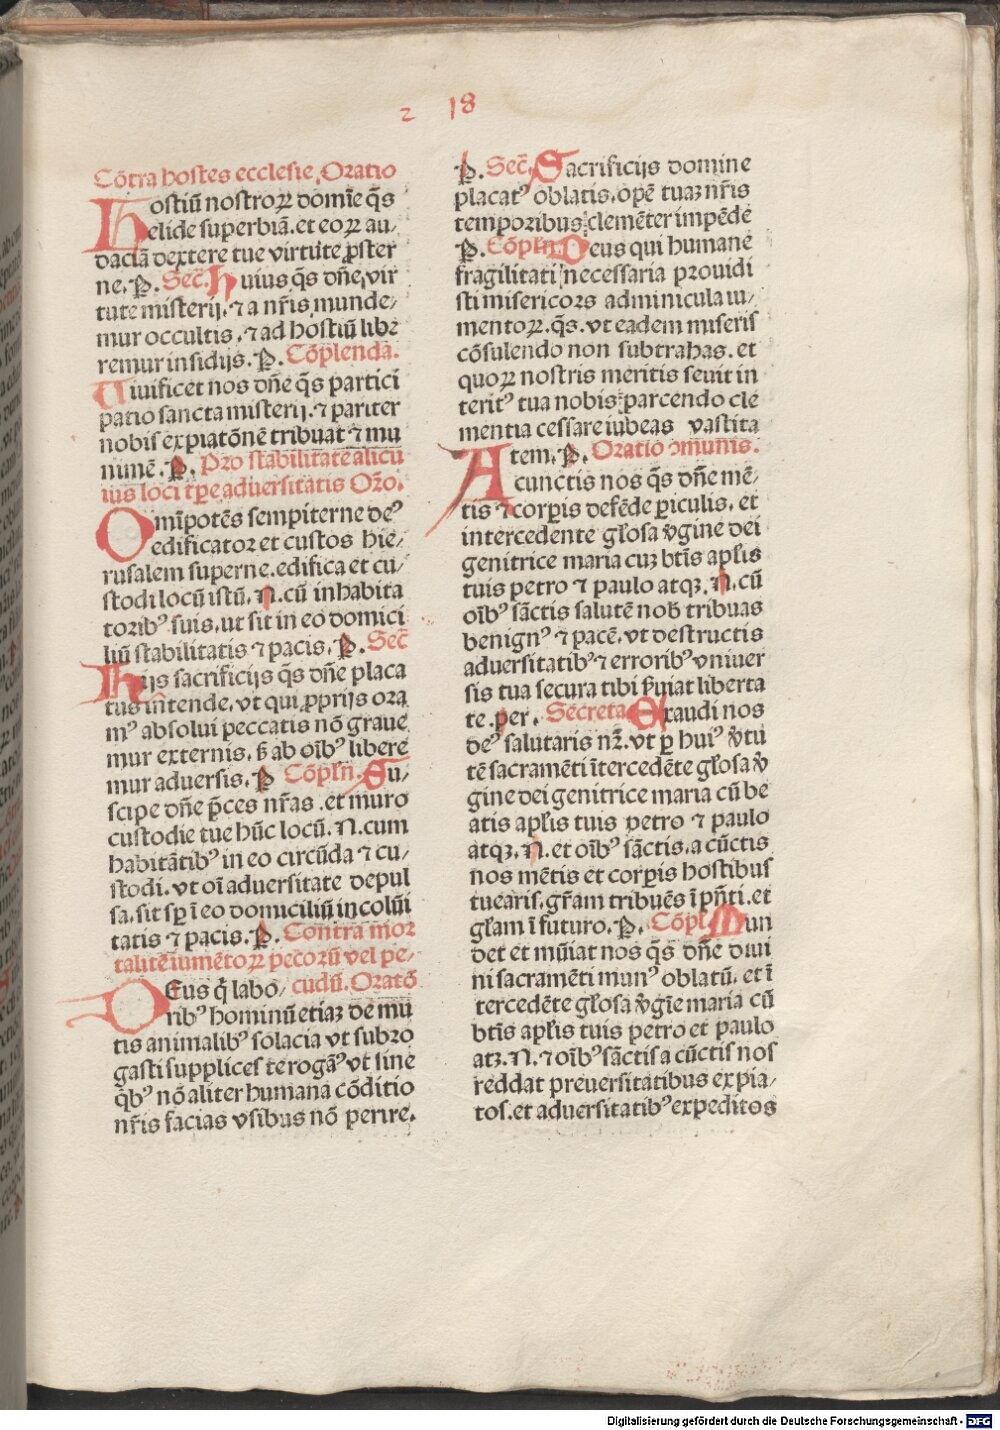 2 18
Cōtra hostes ecclesie. Oratio
Hostiū nostroꝝ domīe q̄s
elide superbiā. et eoꝝ au/
daciā dextere tue virtute ꝓster
ne. P. Sec̄. Huius q̄s dn̄e vir
tute misterij. ⁊ a nr̄is munde/
mur occultis. ⁊ ad hostiū libe
remur insidijs. P. Cōplenda.
Uiuificet nos dn̄e q̄s partici
patio sancta misterij. ⁊ pariter
nobis expiatōnē tribuat ⁊ mu
nimē. P. Pro stabilitate alicu
ius loci tꝑe aduersitatis Or̄o.
Omīpotēs sempiterne deꝰ
edificator et custos hie/
rusalem superne. edifica et cu/
stodi locū istū. N. cū inhabita
toribꝰ suis. ut sit in eo domici
liū stabilitatis ⁊ pacis. P. Sec̄
Hijs sacrificijs q̄s dn̄e placa
tus īntende. vt qui ꝓprijs ora
mꝰ absolui peccatis nō graue
mur externis. s̄ ab oībꝰ libere
mur aduersis. P Cōpln̄. Su/
scipe dn̄e p̄ces nr̄as. et muro
custodie tue hūc locū. N. cum
habitātibꝰ in eo circūda ⁊ cu/
stodi. vt oī aduersitate depul
sa. sit sp̄ ī eo domiciliū incolūi
tatis ⁊ pacis. P. Contra mor
talitēiumētoꝝ pecorū vel pe/
DEus q̄ labo/ cudū. Oratō
ribꝰ hominū etiaꝫ de mu
tis animalibꝰ solacia vt subro
gasti supplices te rogāꝰ vt sine
q̄bꝰ nō aliter humana cōditio
nr̄is facias vsibus nō perire.
P. Sec̄. Sacrificijs domine
placatꝰ oblatis. opē tuaꝫ nr̄is
temporibus clemēter impēde
P. Cōpln̄ Deus qui humane
fragilitati necessaria prouidi
sti misericors adminicula iu/
mentoꝝ. q̄s. vt eadem miseris
cōsulendo non subtrahas. et
quoꝝ nostris meritis seuit in
teritꝰ tua nobis parcendo cle
mentia cessare iubeas vastita
tem. P. Oratio ↄmunis.
A cunctis nos q̄s dn̄e mē/
tis ⁊ corꝑis defēde ꝑiculis. et
intercedente gl̄osa v̄gine dei
genitrice maria cuꝫ btīs apl̄is
tuis petro ⁊ paulo atqꝫ. N. cū
oībꝰ sāctis salutē nob̄ tribuas
benignꝰ ⁊ pacē. vt destructis
aduersitatibꝰ ⁊ erroribꝰ vniuer
sis tua secura tibi s̄uiat liberta
te. per. Secreta Exaudi nos
deꝰ salutaris nr̄. vt ꝑ huiꝰ v̄tu
tē sacramēti ītercedēte gl̄osa v̄
gine dei genitrice maria cū be
atis apl̄is tuis petro ⁊ paulo
atqꝫ. N. et oībꝰ sāctis. a cūctis
nos mētis et corꝑis hostibus
tuearis. gr̄am tribuēs ī pn̄ti. et
gl̄am ī futuro. P. Cōpl̄ Mun
det et mūiat nos q̄s dn̄e diui
ni sacramēti munꝰ oblatū. et ī
tercedēte gl̄osa v̄gīe maria cū
btīs apl̄is tuis petro et paulo
atꝫ. N. ⁊ oībꝰ sāctis a cūctis nos
reddat preuersitatibus expia/
tos. et aduersitatibꝰ expeditos
Digitalisierung gefördert durch die Deutsche Forschungsgemeinschaft - DFG